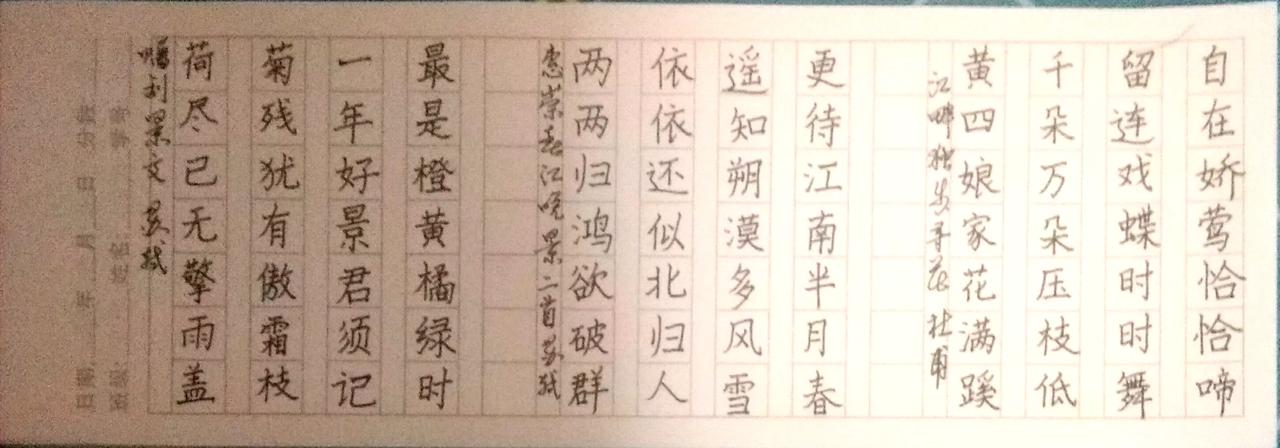 日期: 年 月 日 分数
班级: 姓名: 学号
赠刘景文 苏轼
荷尽已无擎雨盖
菊残犹有傲霜枝
一年好景君须记
最是橙黄橘绿时
惠崇春江晚景二首 苏轼
两两归鸿欲破群
依依还似北归人
遥知朔漠多风雪
更待江南半月春
江畔独步寻花 杜甫
黄四娘家花满蹊
千朵万朵压枝低
留连戏蝶时时舞
自在娇莺恰恰啼